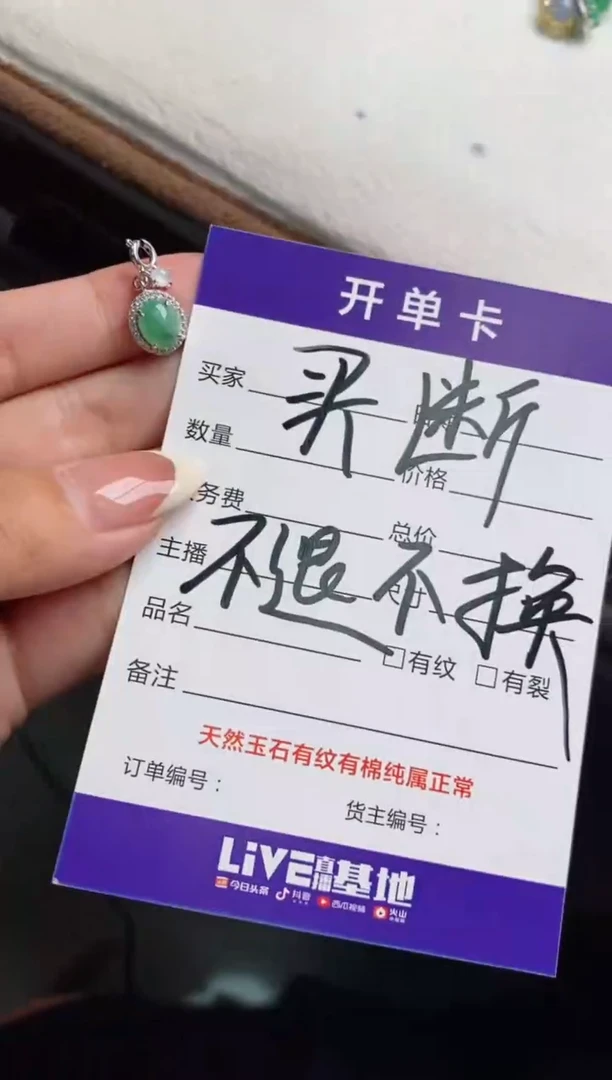 开单卡
买家
买断
数量
价格
务费
总价
主播
不退不换
品名
□有纹 □有裂
备注
天然玉石有纹有棉纯属正常
订单编号：
货主编号：
LiVE直播基地
今日头条 抖音 西瓜视频 火山